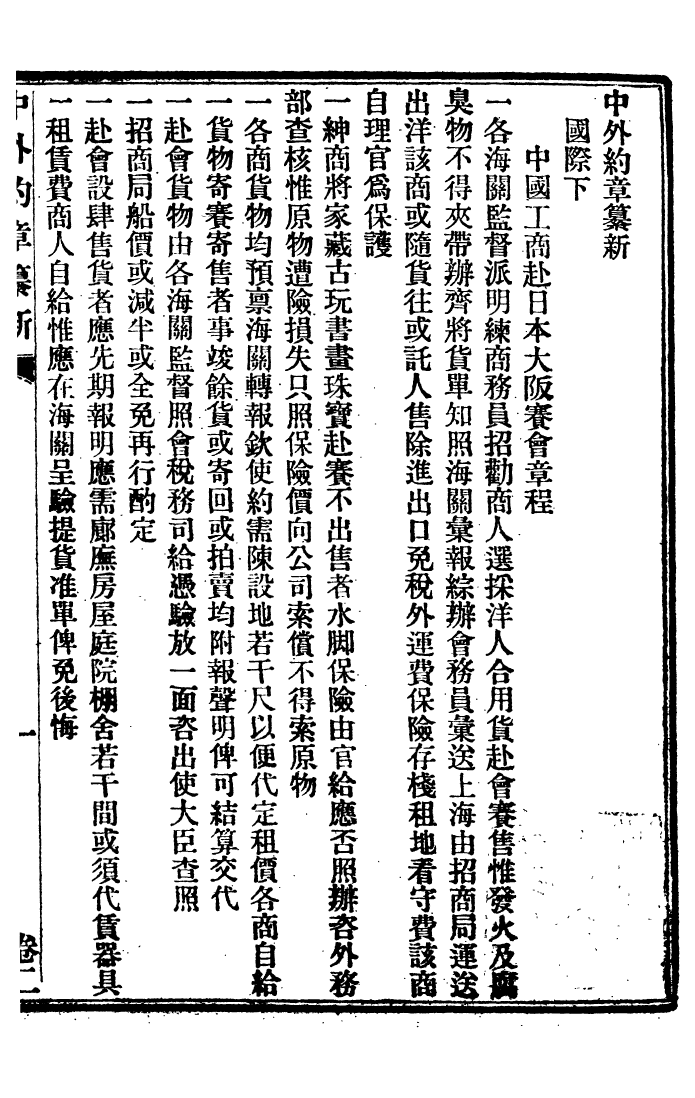 中外約章纂新
國際下
中國工商赴日本大阪賽會章程
一各海關監督派明練商務員招勸商人選採洋人合用貨赴會賽售惟發火及腐
臭物不得夾帶辦齊將貨單知照海關彙報綜辦會務員彙送上海由招商局運送
出洋該商或隨貨往或託人售除進出口免稅外運費保險存棧租地看守費該商
自理官爲保護
一紳商將家藏古玩書畫珠寶赴賽不出售者水脚保險由官給應否照辦咨外務
部查核惟原物遭險損失只照保險價向公司索償不得索原物
一各商貨物均預禀海關轉報欽使約需陳設地若干尺以便代定租價各商自給
一貨物寄賽寄售者事竣餘貨或寄回或拍賣均附報聲明俾可結算交代
一赴會貨物由各海關監督照會稅務司給憑驗放一面咨出使大臣查照
一招商局船價或減半或全免再行酌定
一赴會設肆售貨者應先期報明應需廊廡房屋庭院棚舍若干間或須代賃器具
一租賃費商人自給惟應在海關呈驗提貨准單俾免後悔
中外約章纂新
一
卷二